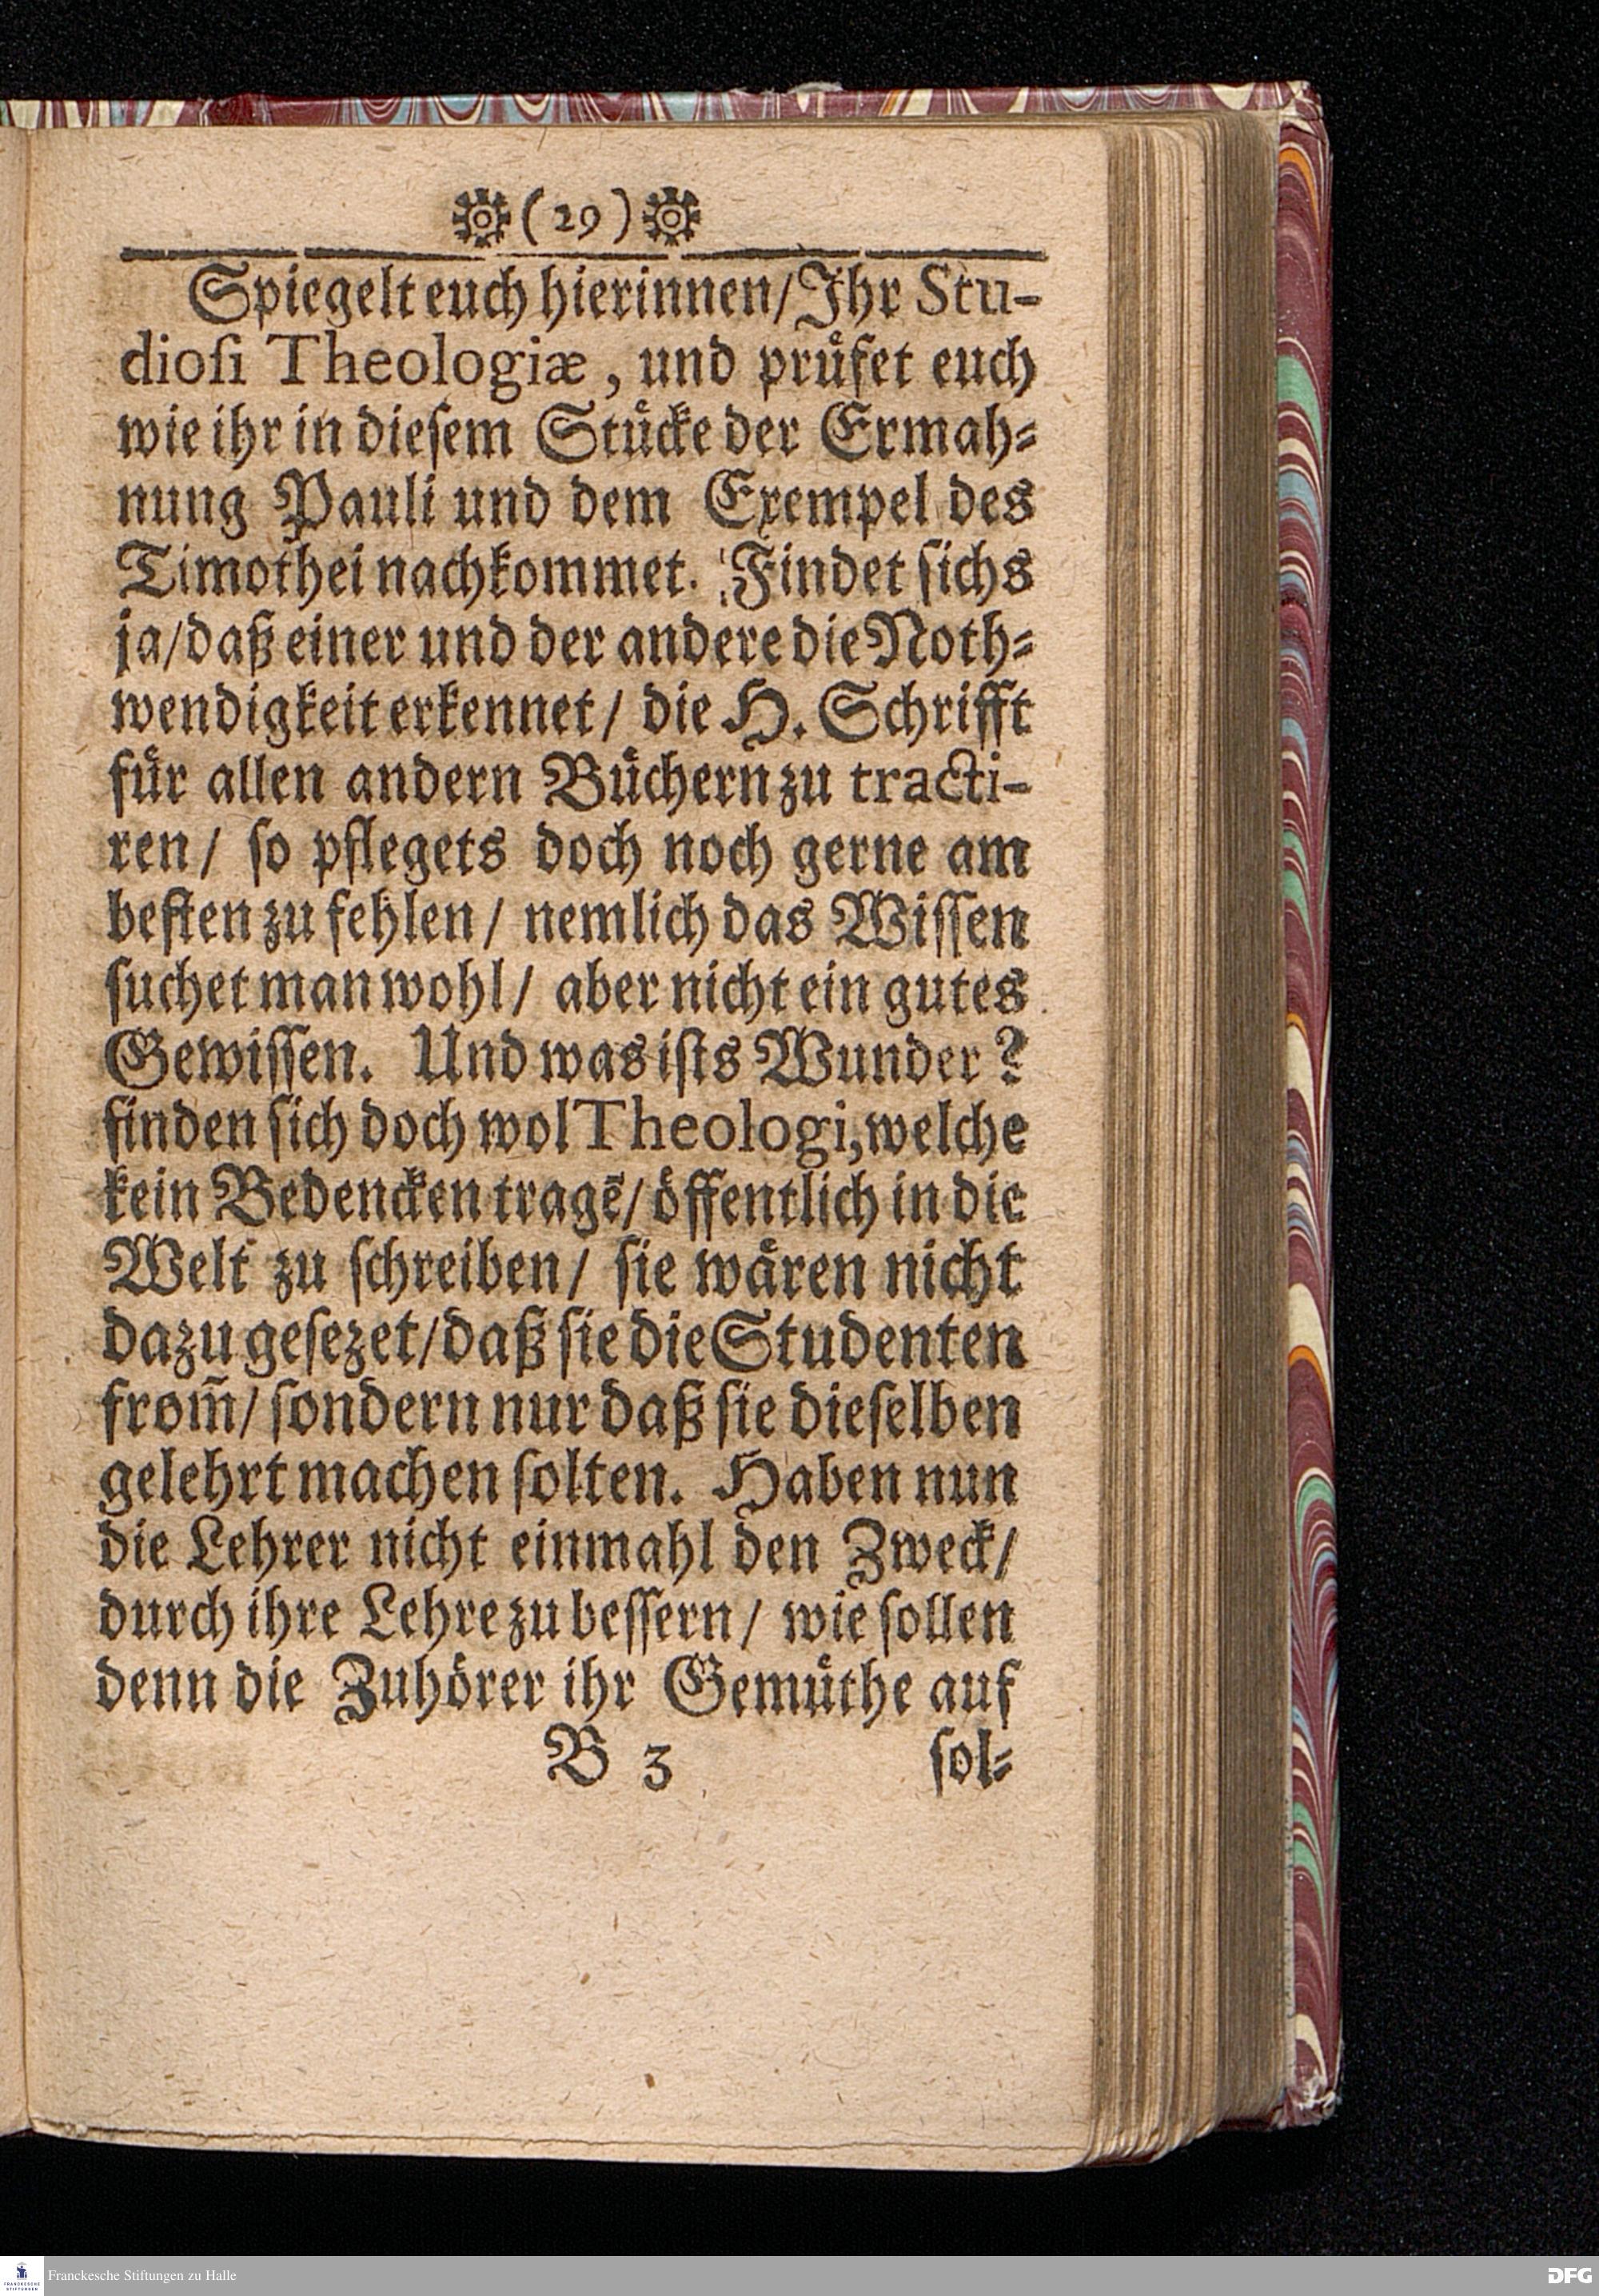 (29)
Spiegelt euch hierinnen/ Ihr Stu-
dioſi Theologiæ, und pruͤfet euch
wie ihr in dieſem Stuͤcke der Ermah⸗
nung Pauli und dem Exempel des
Timothei nachkommet. Findet ſichs
ja/ daß einer und der andere die Noth⸗
wendigkeit erkennet/ die H. Schrifft
fuͤr allen andern Buͤchern zu tracti-
ren/ ſo pflegets doch noch gerne am
beſten zu fehlen/ nemlich das Wiſſen
ſuchet man wohl/ aber nicht ein gutes
Gewiſſen. Und was iſts Wunder?
finden ſich doch wol Theologi, welche
kein Bedencken tragē/ oͤffentlich in die
Welt zu ſchreiben/ ſie waͤren nicht
dazu geſezet/ daß ſie die Studenten
from̃/ ſondern nur daß ſie dieſelben
gelehrt machen ſolten. Haben nun
die Lehrer nicht einmahl den Zweck/
durch ihre Lehre zu beſſern/ wie ſollen
denn die Zuhoͤrer ihr Gemuͤthe auf
B 3 ſol⸗
FRANCKESCHE STIFTUNGEN
Franckesche Stiftungen zu Halle
DFG